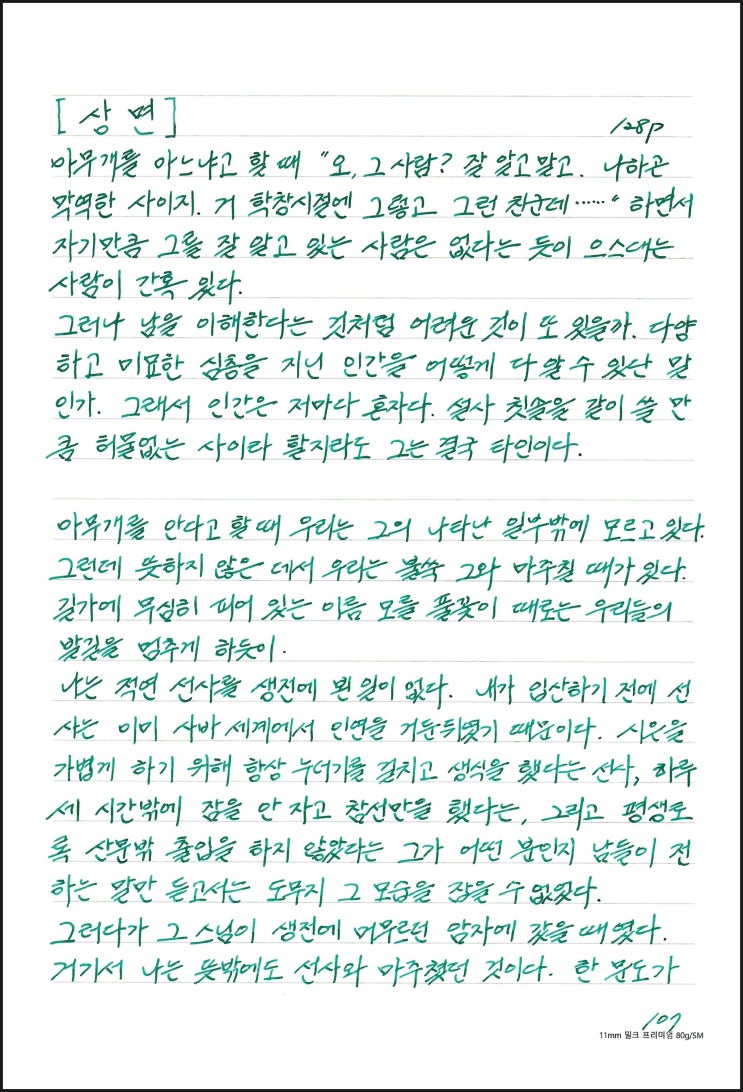 [상면]
128p
아무개를 아느냐고 할 때 "오, 그 사람? 잘 알고 말고. 나하곤
막역한 사이지. 거 학창시절엔 그렇고 그런 친군데……" 하면서
자기만큼 그를 잘 알고 있는 사람은 없다는 듯이 으스대는
사람이 간혹 있다.
그러나 남을 이해한다는 것처럼 어려운 것이 또 있을까. 다양
하고 미묘한 심층을 지닌 인간을 어떻게 다 알 수 있난 말
인가. 그래서 인간은 저마다 혼자다. 설사 칫솔을 같이 쓸 만
큼 허물없는 사이라 할지라도 그는 결국 타인이다.
아무개를 안다고 할 때 우리는 그의 나타난 일부밖에 모르고 있다.
그런데 뜻하지 않은 데서 우리는 불쑥 그와 마주칠 때가 있다.
길가에 무심히 피어 있는 이름 모를 풀꽃이 때로는 우리들의
발길을 멈추게 하듯이.
나는 적연 선사를 생전에 뵌 일이 없다. 내가 입산하기 전에 선
사는 이미 사바 세계에서 인연을 거둔뒤였기 때문이다. 시은을
가볍게 하기 위해 항상 누더기를 걸치고 생식을 했다는 선사, 하루
세 시간밖에 잠을 안 자고 참선만을 했다는, 그리고 평생토
록 산문밖 출입을 하지 않았다는 그가 어떤 분인지 남들이 전
하는 말만 듣고서는 도무지 그 모습을 잡을 수 없었다.
그러다가 그 스님이 생전에 머무르던 암자에 갔을 때였다.
거기서 나는 뜻밖에도 선사와 마주쳤던 것이다. 한 문도가
107
11mm 밀크 프리미엄 80g/SM